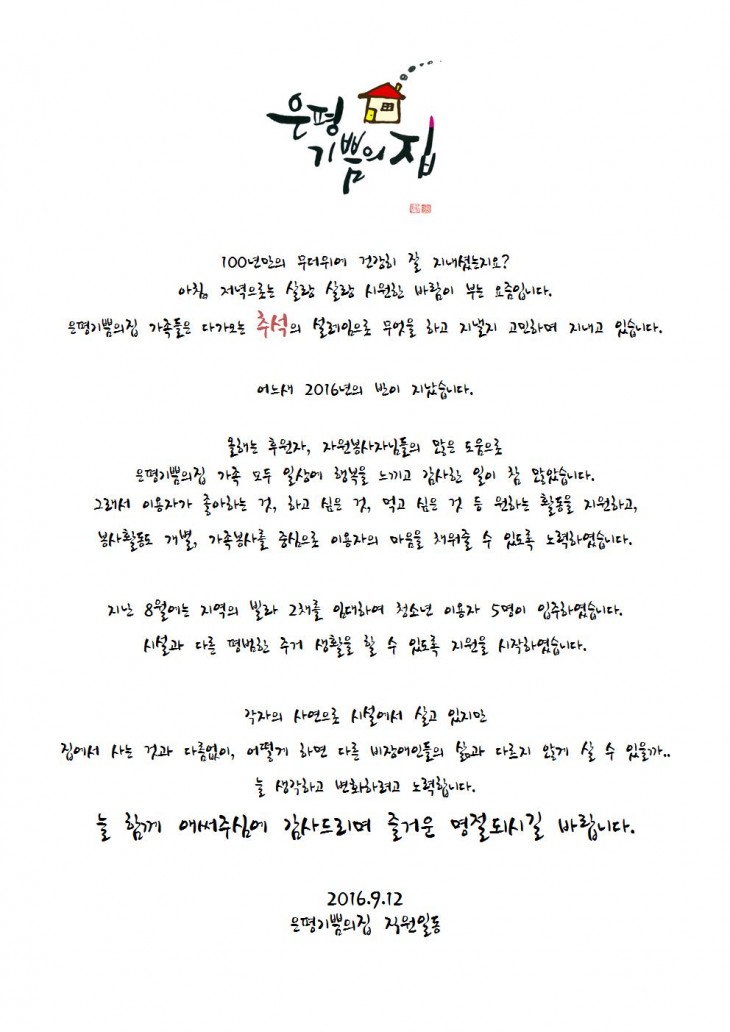 은평
기쁨의집
100년만의 무더위에 건강히 잘 지내셨는지요?
아침, 저녁으로는 살랑 살랑 시원한 바람이 부는 요즘입니다.
은평기쁨의집 가족들은 다가오는 추석의 설레임으로 무엇을 하고 지낼지 고민하며 지내고 있습니다.
어느새 2016년의 반이 지났습니다.
올해는 후원자, 자원봉사자님들의 많은 도움으로
은평기쁨의집 가족 모두 일상에 행복을 느끼고 감사한 일이 참 많았습니다.
그래서 이용자가 좋아하는 것, 하고 싶은 것, 먹고 싶은 것 등 원하는 활동을 지원하고,
봉사활동도 개별, 가족봉사를 중심으로 이용자의 마음을 채워줄 수 있도록 노력하였습니다.
지난 8월에는 지역의 빌라 2채를 임대하여 청소년 이용자 5명이 입주하였습니다.
시설과 다른 평범한 주거 생활을 할 수 있도록 지원을 시작하였습니다.
각자의 사연으로 시설에서 살고 있지만
집에서 사는 것과 다름없이, 어떻게 하면 다른 비장애인들의 삶과 다르지 않게 살 수 있을까..
늘 생각하고 변화하려고 노력합니다.
늘 함께 애써주심에 감사드리며 즐거운 명절되시길 바랍니다.
2016.9.12
은평기쁨의집 직원일동